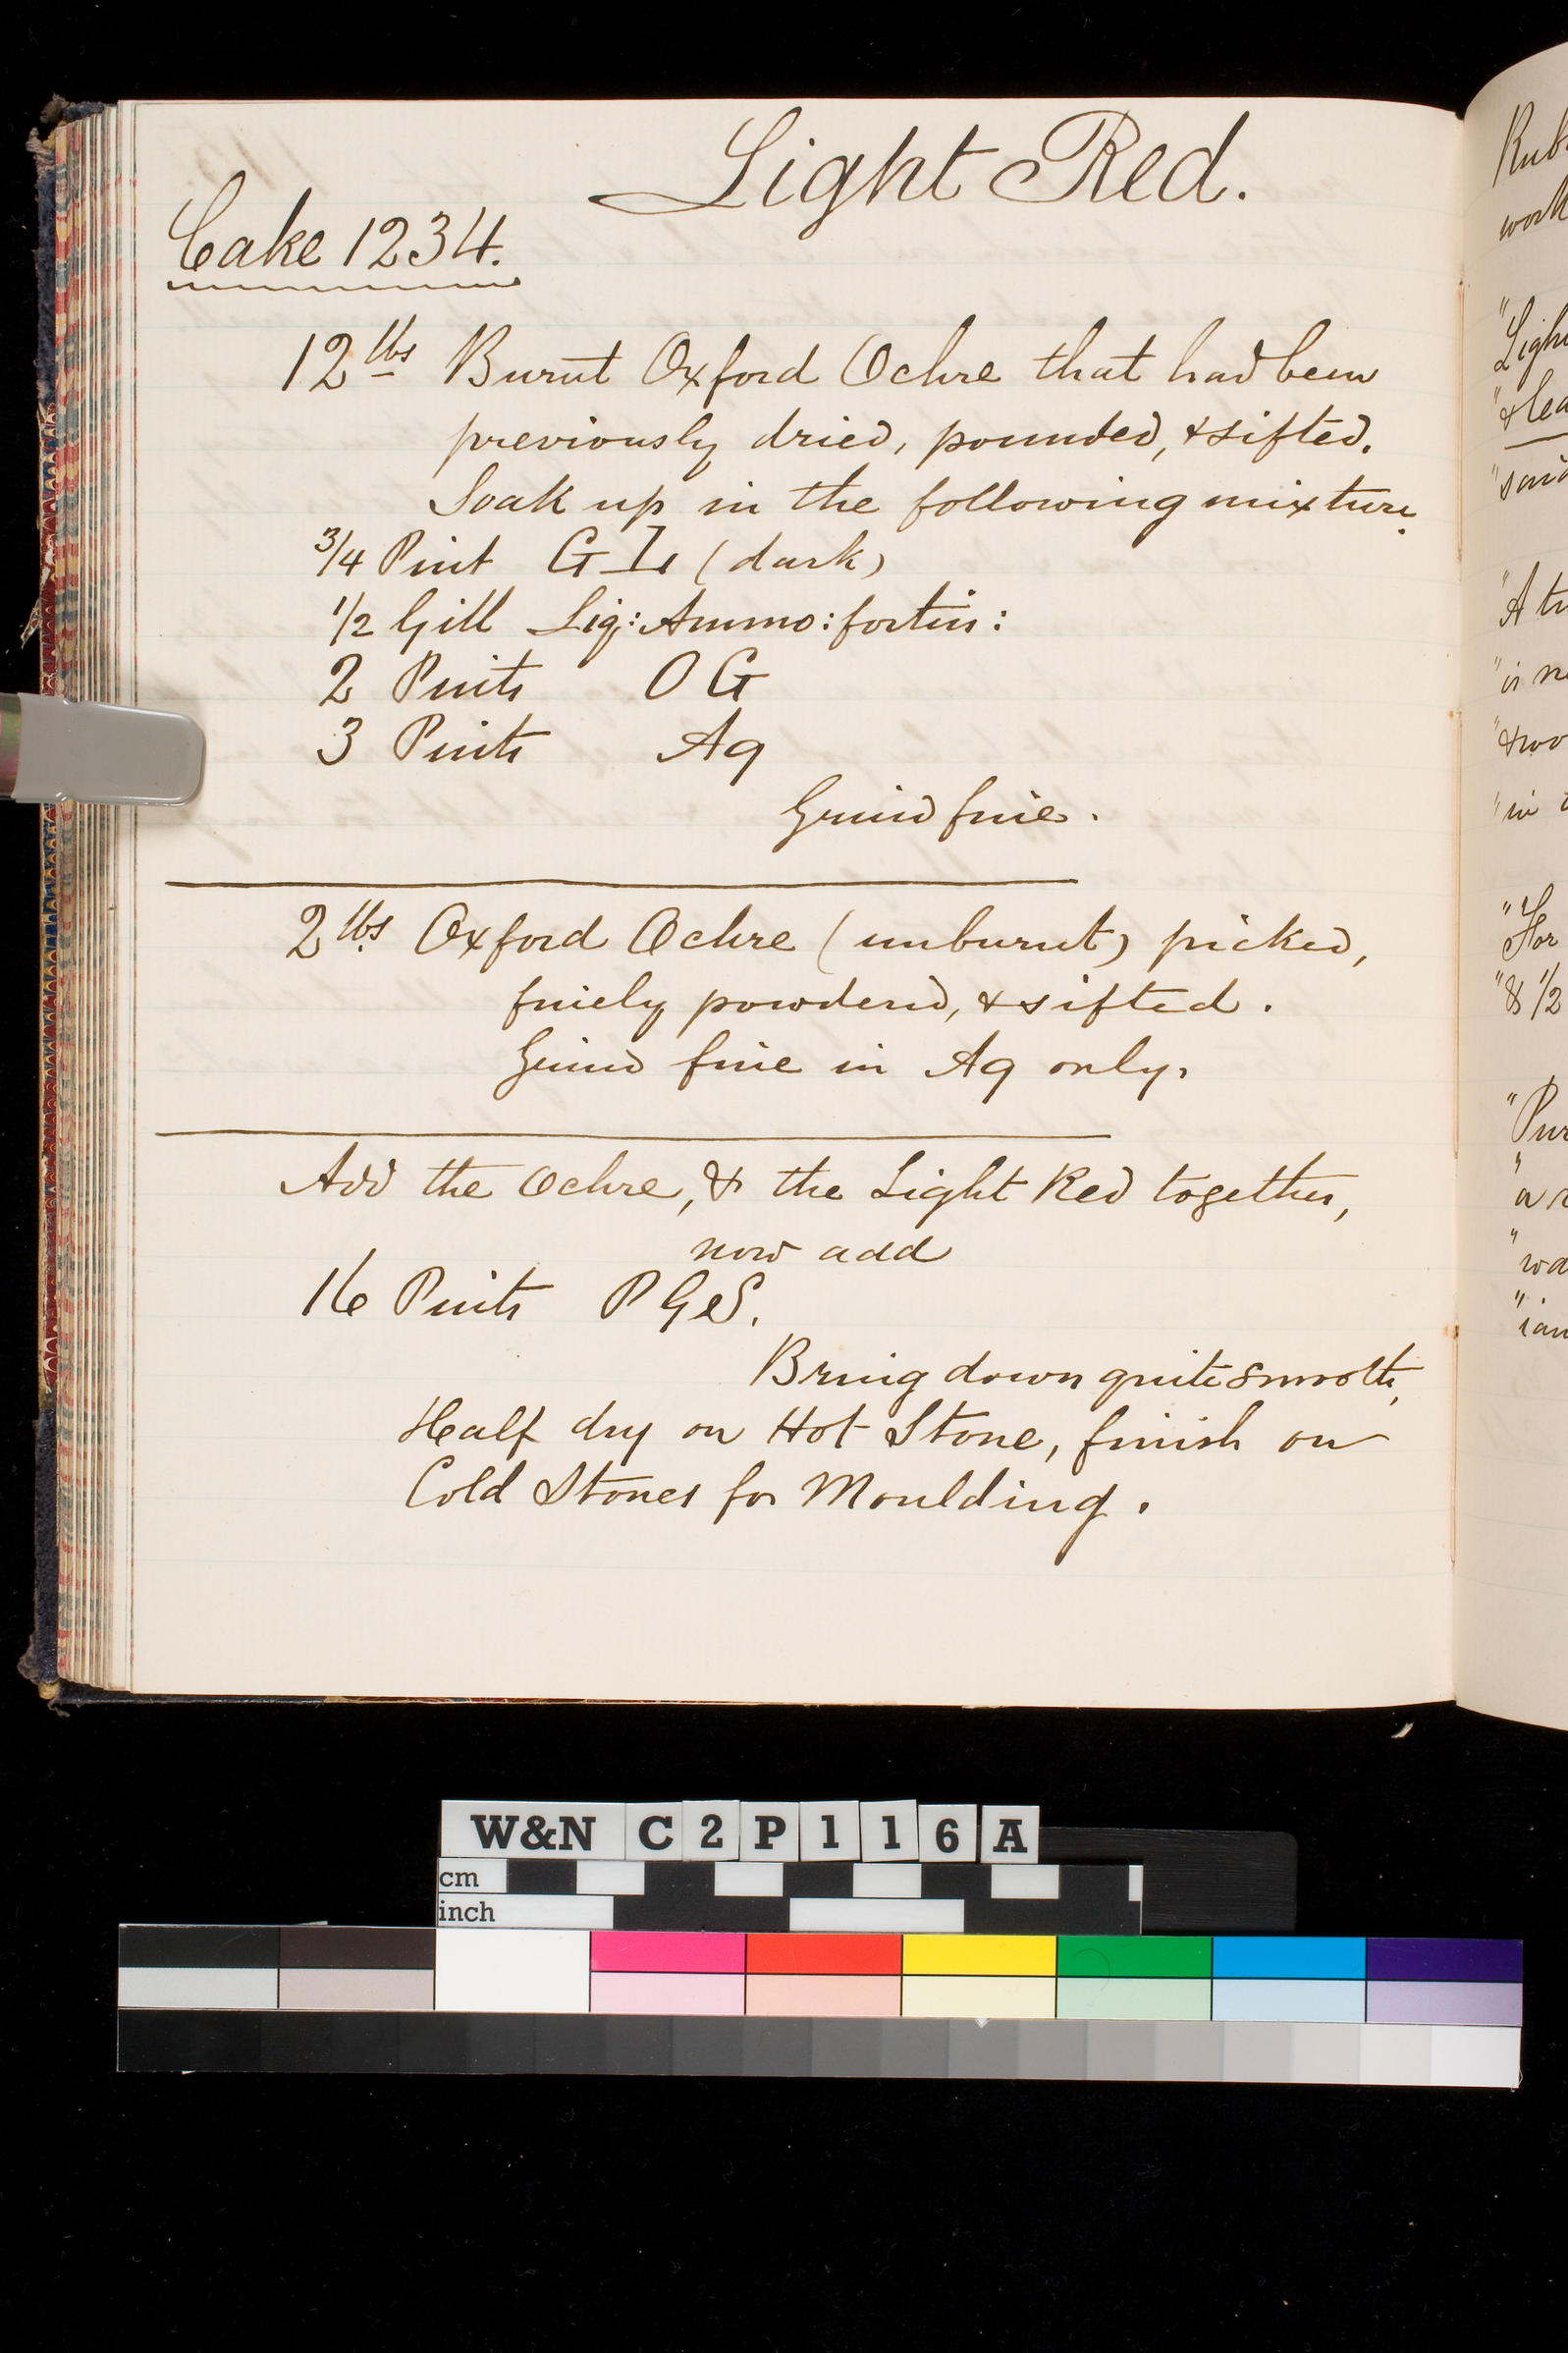 Light Red.
Cake 1234.
12 lbs Burnt Oxford Ochre that had been
previously dried, pounded, & sifted.
Soak up in the following mixture.
3/4 Pint G L (dark)
1/2 Gill Liq: Ammo: fortis:
2 Pints O G
3 Pints Aq
Grind fine.
2 lbs Oxford Ochre (unburnt) picked,
finely powdered, & sifted.
Grind fine in Aq only.
Add the Ochre, & the Light Red together,
now add
16 Pints P G S.
Bring down quite smooth,
Half dry on Hot Stone, finish on
Cold Stones for Moulding.
Rub
work
"Ligh
"& lea
"said
"A tr
"is n
"& wo
"in
"For
"& 1/2
"Pur
"a
"wa
"ian
W&N C2P116A
cm
inch